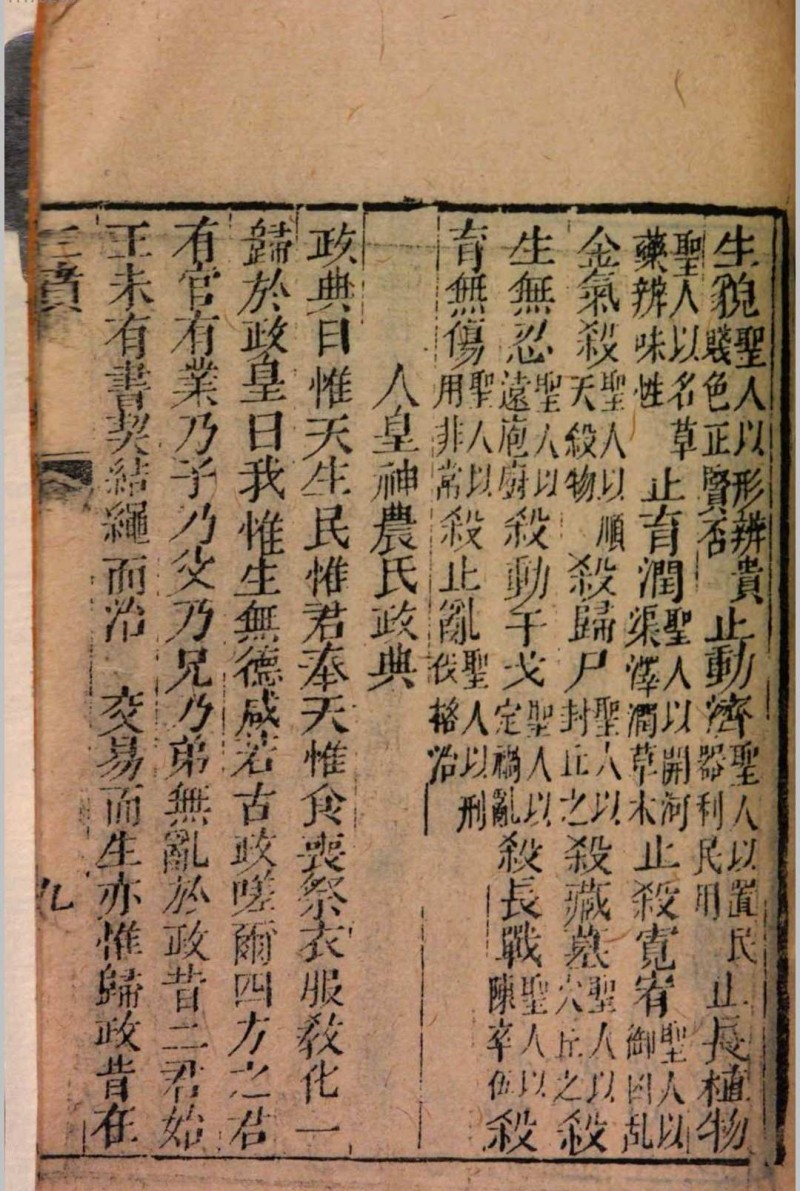 生貌聖人以形辨貴賤色正賢否止動濟聖人以置民器利民用止長植物
聖人以名草藥辨味性止育潤聖人以開河渠澤潤草木止殺寬宥聖人以御因乱
金氣殺聖人以順天殺物殺歸尸聖人以封丘之殺藏墓聖人以穴丘之殺
生無忍聖人以遠庖廚殺動干戈聖人以定禍亂殺長戰聖人以陳卒伍殺
育無傷聖人以用非常殺止亂聖人以刑伐格治
人皇神農氏政典
政典曰惟天生民惟君奉天惟食喪祭衣服教化一
歸於政皇曰我惟生無德咸若古政嗟爾四方之君
有官有業乃子乃父乃兄乃弟無亂於政昔二君始
王未有書契結繩而治 交易而生亦惟歸政昔在
三墳
九